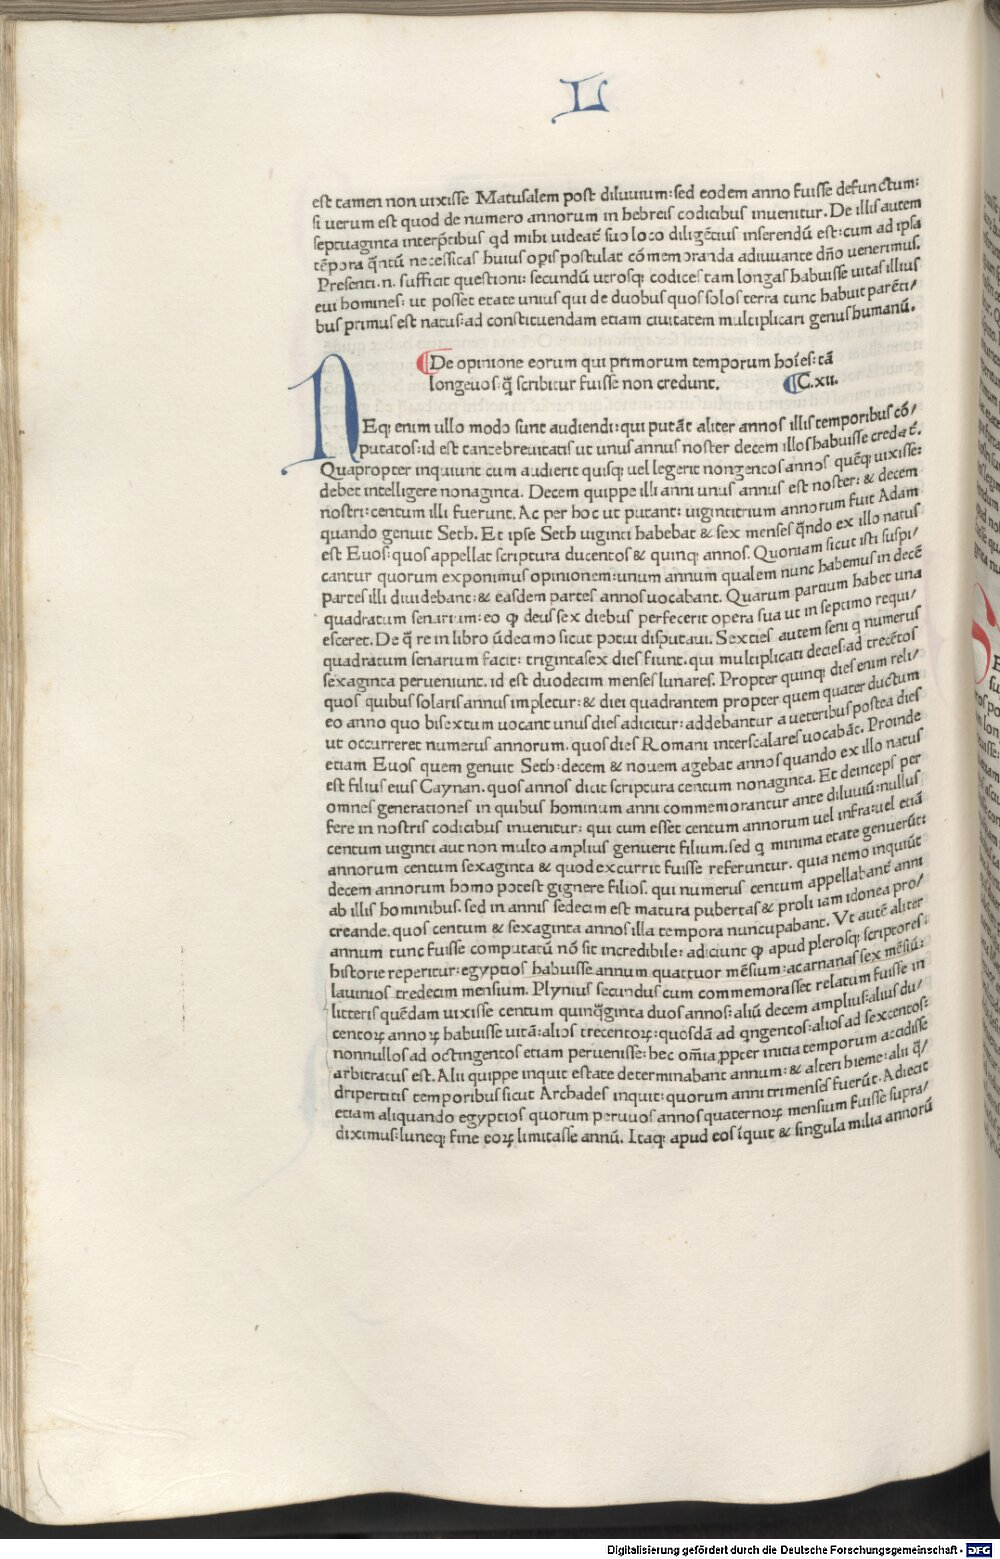 L
est tamen non uixisse Matusalem post diluuium: sed eodem anno fuisse defunctum:
si uerum est quod de numero annorum in hebreis codicibus inuenitur. De illis autem
septuaginta interp̄tibus qd mihi uideat᷑ suo loco diligētius inserendū est: cum ad ipsa
tēpora q̄ntū necessitas huius opis postulat cōmemoranda adiuuante dn̄o uenerimus.
Presenti .n. sufficit questioni: secundū utrosq; codices tam longas habuisse uitas illius
eui homines: ut posset etate unius qui de duobus quos solos terra tunc habuit parēti/
bus primus est natus: ad constituendam etiam ciuitatem multiplicari genus humanū.
¶De opinione eorum qui primorum temporum hoīes: tā
longeuos: q̄ scribitur fuisse non credunt. ¶C.xii.
NEq; enim ullo modo sunt audiendi: qui putāt aliter annos illis temporibus cō/
putatos: id est tante breuitatis ut unus annus noster decem illos habuisse credat᷑.
Quapropter inquiunt cum audierit quisq; uel legerit nongentos annos quēq; uixisse:
debet intelligere nonaginta. Decem quippe illi anni unus annus est noster: & decem
nostri: centum illi fuerunt. Ac per hoc ut putant: uigintitrium annorum fuit Adam
quando genuit Seth. Et ipse Seth uiginti habebat & sex menses q̄ndo ex illo natus
est Enos: quos appellat scriptura ducentos & quinq; annos. Quoniam sicut isti suspi/
cantur quorum exponimus opinionem: unum annum qualem nunc habemus in decē
partes illi diuidebant: & easdem partes annos uocabant. Quarum partium habet una
quadratum senarium: eo ꝙ deus sex diebus perfecerit opera sua ut in septimo requi/
esceret. De q̄ re in libro ūdecimo sicut potui disputaui. Sexties autem seni q numerus
quadratum senarium facit: trigintasex dies fiunt. qui multiplicati decies: ad trecētos
sexaginta perueniunt. id est duodecim menses lunares. Propter quinq; dies enim reli/
quos quibus solaris annus impletur: & diei quadrantem propter quem quater ductum
eo anno quo bisextum uocant unus dies adicitur: addebantur a ueteribus postea dies
ut occurreret numerus annorum. quos dies Romani interscalares uocabāt. Proinde
etiam Enos quem genuit Seth: decem & nouem agebat annos quando ex illo natus
est filius eius Caynan. quos annos dicit scriptura centum nonaginta. Et deinceps per
omnes generationes in quibus hominum anni commemorantur ante diluuiū: nullus
fere in nostris codicibus inuenitur: qui cum esset centum annorum uel infra: uel etiā
centum uiginti aut non multo amplius genuerit filium. sed q minima etate genuerūt:
annorum centum sexaginta & quod excurrit fuisse referuntur. quia nemo inquiūt
decem annorum homo potest gignere filios. qui numerus centum appellabant᷑ anni
ab illis hominibus. sed in annis sedecim est matura pubertas & proli iam idonea pro/
creande. quos centum & sexaginta annos illa tempora nuncupabant. Vt autē aliter
annum tunc fuisse computatū nō sit incredibile: adiciunt ꝙ apud plerosq; scriptores
historie reperitur: egyptios habuisse annum quattuor mēsium: acarnanas sex mēsiū:
lauinios tredecim mensium. Plynius secundus cum commemorasset relatum fuisse in
litteris quēdam uixisse centum quinq̄ginta duos annos: aliū decem amplius: alius du/
centoꝝ annoꝝ habuisse uitā: alios trecentoꝝ: quosdā ad qngentos: alios ad sexcentos:
nonnullos ad octingentos etiam peruenisse: hec om̄ia ꝓpter initia temporum accidisse
arbitratus est. Alii quippe inquit estate determinabant annum: & alteri hieme: alii q̄/
dripertitis temporibus sicut Archades inquit: quorum anni trimenses fuerūt. Adiecit
etiam aliquando egyptios quorum paruos annos quaternoꝝ mensium fuisse supra/
diximus: luneq; fine eoꝝ limitasse annū. Itaq; apud eos īquit & singula milia annorū
Digitalisierung gefördert durch die Deutsche Forschungsgemeinschaft - DFG